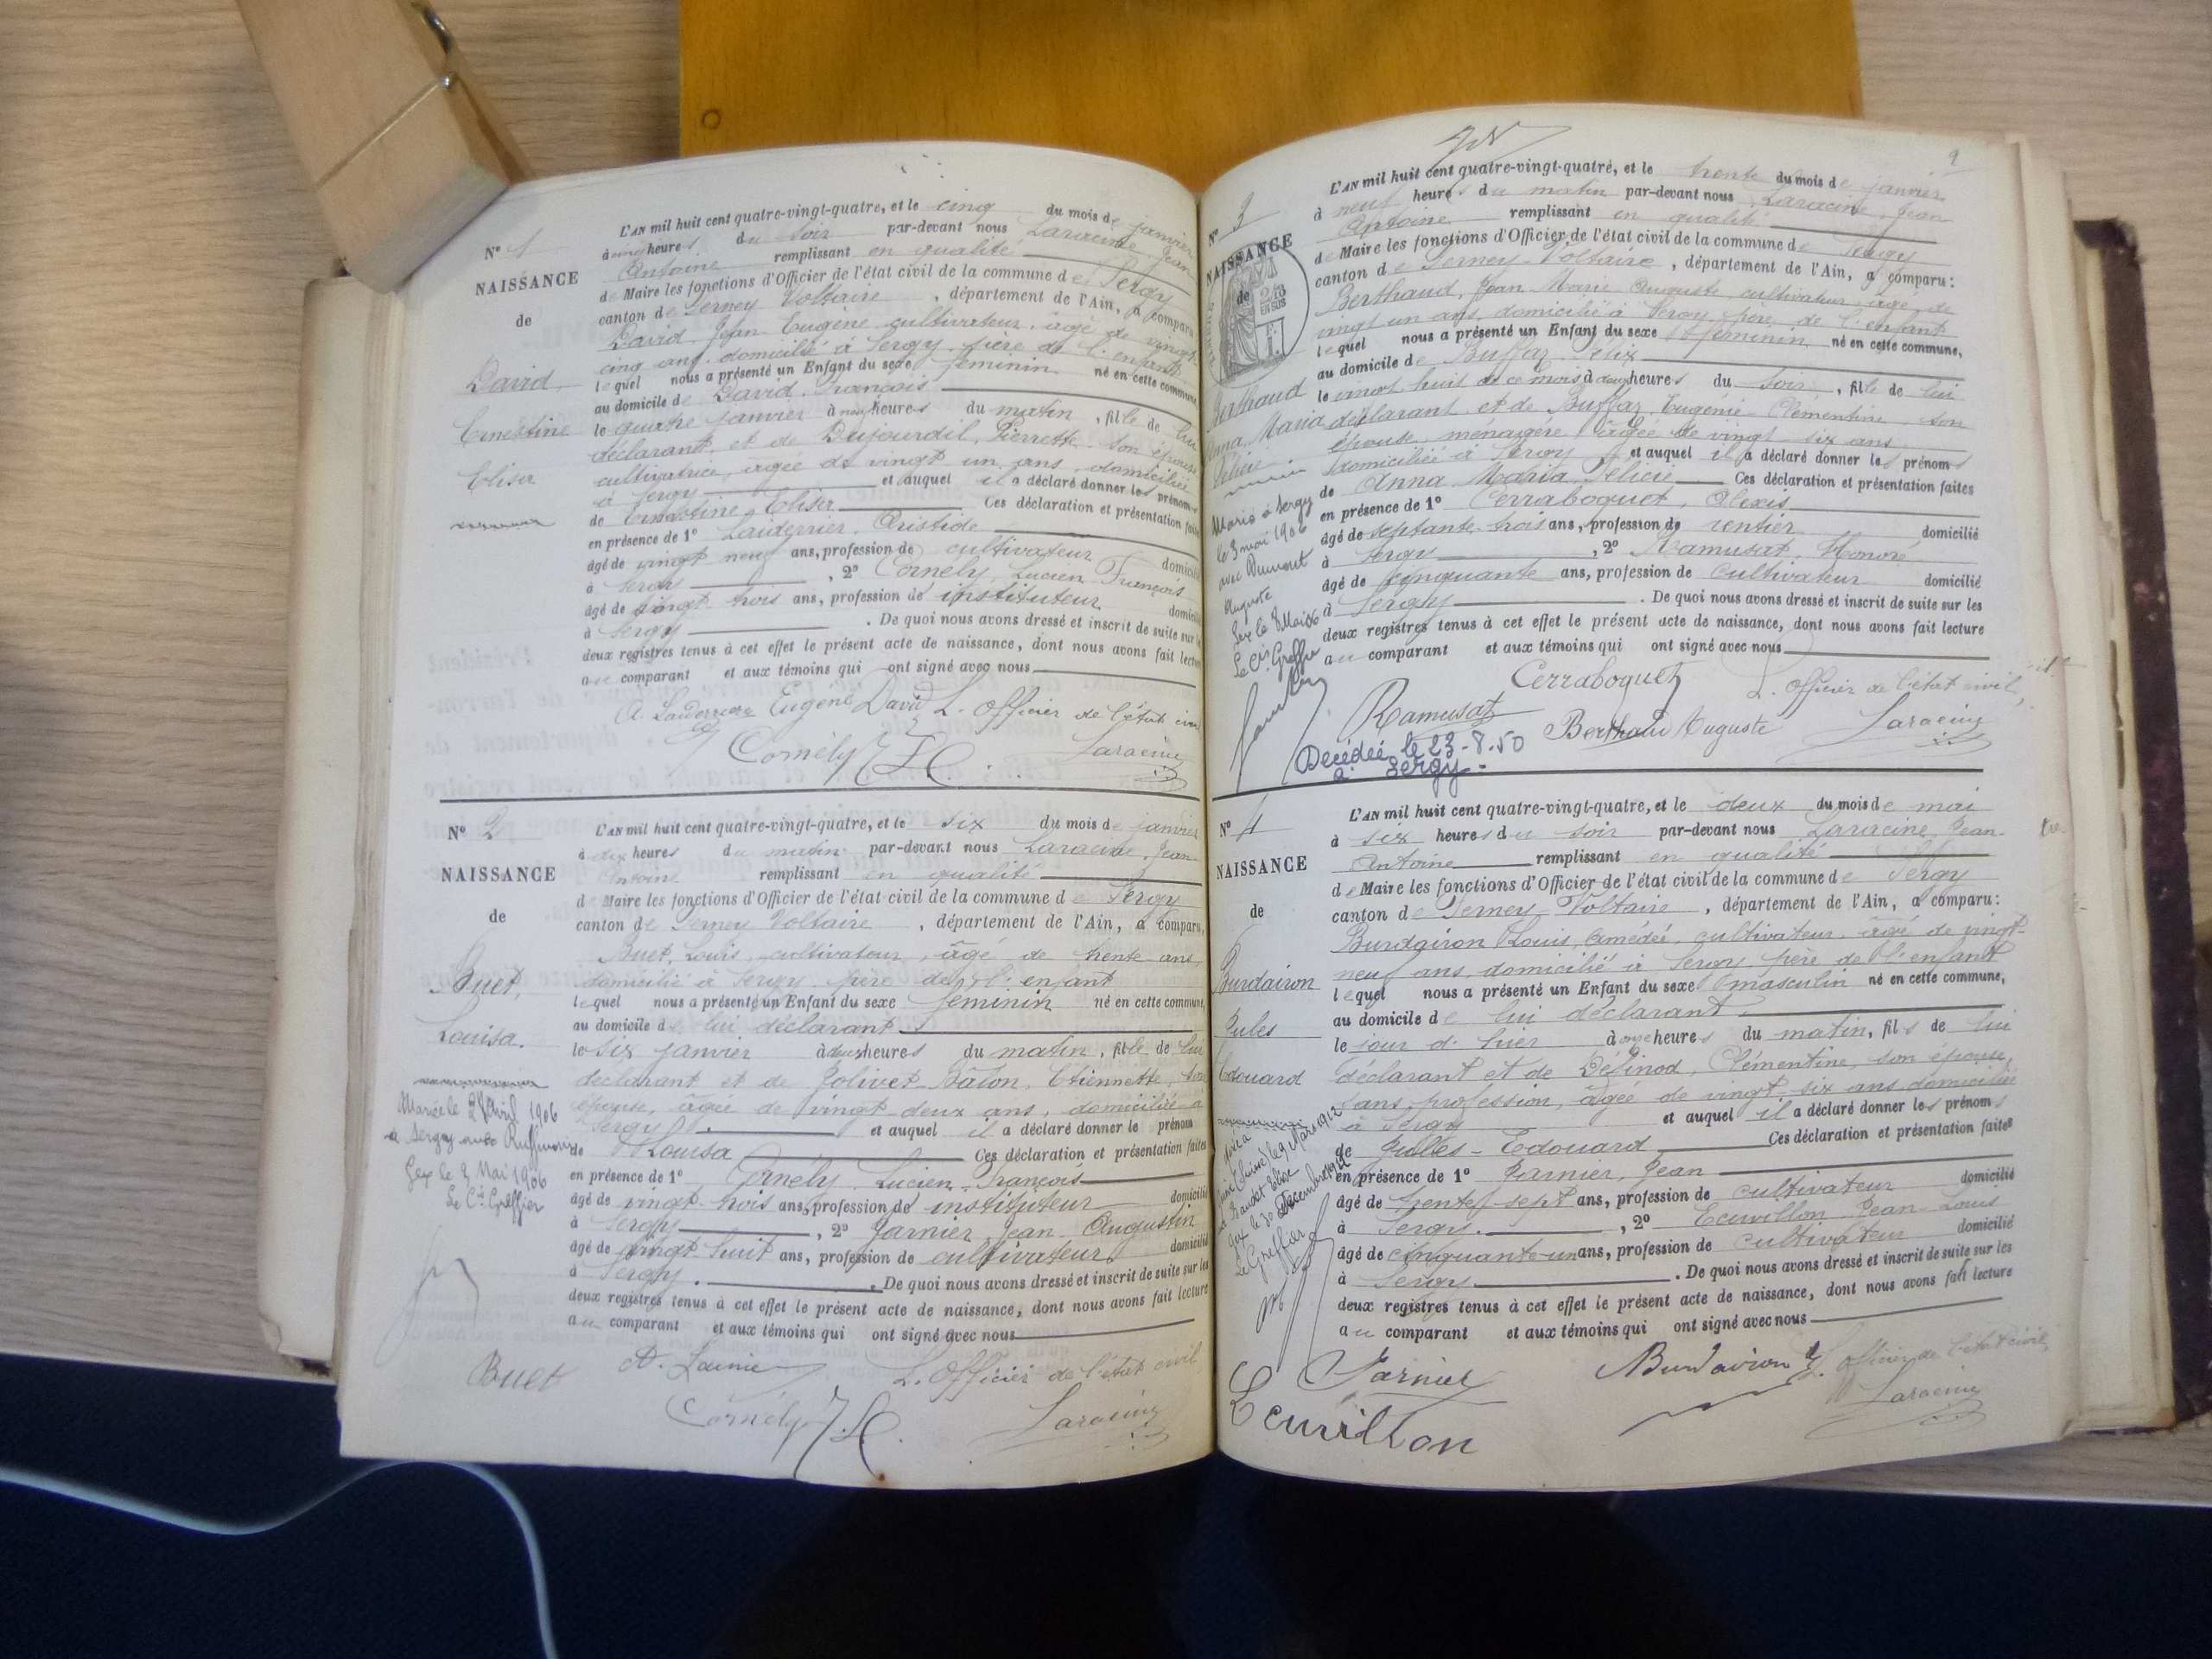 N° 1
NAISSANCE
de
David
Ernestine
Elisa
L'AN mil huit cent quatre-vingt-quatre, et le cinq du mois de janvier
à cinq heures du soir par-devant nous Laracine Jean
Antoine remplissant en qualité
de Maire les fonctions d'Officier de l'état civil de la commune de Sergy
canton de Ferney Voltaire, département de l'Ain, a comparu
David, Jean Eugène cultivateur, âgé de vingt
cinq ans, domicilié à Sergy, père de l'enfant
lequel nous a présenté un Enfant du sexe féminin né en cette commune
au domicile de David François
le quatre janvier à neuf heures du matin, fille de lui
déclarant et de Pierrette son épouse
cultivatrice, âgée de vingt un ans, domiciliée
à Sergy et auquel il a déclaré donner les prénoms
de Ernestine Elisa Ces déclaration et présentation faites
en présence de 1° Aristide
âgé de vingt neuf ans, profession de cultivateur domicilié
à Sergy, 2° Cornély, Lucien François
âgé de vingt trois ans, profession de instituteur domicilié
à Sergy. De quoi nous avons dressé et inscrit de suite sur les
deux registres tenus à cet effet le présent acte de naissance, dont nous avons fait lecture
au comparant et aux témoins qui ont signé avec nous
Eugène David L'officier de l'état civil
Cornély Laracine
N° 2
NAISSANCE
de
Buet,
Louisa.
Mariée le Avril 1906
à Sergy avec
Gex le 2 Mai 1906
Le Cis Greffier
L'AN mil huit cent quatre-vingt-quatre, et le six du mois de janvier
à dix heures du matin par-devant nous Laracine, Jean
Antoine remplissant en qualité
d Maire les fonctions d'Officier de l'état civil de la commune de Sergy
canton de Ferney Voltaire, département de l'Ain, a comparu,
Buet, Louis, cultivateur, âgé de trente ans,
domicilié à Sergy père de l'enfant
lequel nous a présenté un Enfant du sexe féminin né en cette commune,
au domicile de lui déclarant
le six janvier à deux heures du matin, fille de lui
déclarant et de Jolivet Etiennette, son
épouse, âgée de vingt deux ans, domiciliée à
Sergy et auquel il a déclaré donner le prénom
de Louisa Ces déclaration et présentation faites
en présence de 1° Cornély, Lucien, François
âgé de vingt trois ans, profession de instituteur domicilié
à Sergy, 2° Jarnier Jean Augustin
âgé de vingt huit ans, profession de cultivateur domicilié
à Sergy. De quoi nous avons dressé et inscrit de suite sur les
deux registres tenus à cet effet le présent acte de naissance, dont nous avons fait lecture
au comparant et aux témoins qui ont signé avec nous
Buet L'Officier de l'état civil
Cornély Laracine
2
N° 3
NAISSANCE
de
Berthaud
Anna, Maria
Félicie
Mariée à Sergy
le 3 mai 1906
avec Dumont
Auguste
Gex le 8 Mai
Le Cis Greffier
L'AN mil huit cent quatre-vingt-quatre, et le trente du mois de janvier
à neuf heures du matin par-devant nous Laracine, Jean
Antoine remplissant en qualité
de Maire les fonctions d'Officier de l'état civil de la commune de Sergy
canton de Ferney-Voltaire, département de l'Ain, a comparu:
Berthaud, Jean Marie Auguste, cultivateur, âgé de
vingt un ans, domicilié à Sergy, père de l'enfant
lequel nous a présenté un Enfant du sexe féminin né en cette commune,
au domicile de Buffaz Félix
le vingt huit de ce mois à deux heures du soir, fille de lui
déclarant et de Buffaz, Eugénie Clémentine, son
épouse, ménagère, âgée de vingt six ans
domiciliée à Sergy et auquel il a déclaré donner les prénoms
de Anna Maria Félicie Ces déclaration et présentation faites
en présence de 1° Cerraboquet, Alexis
âgé de septante trois ans, profession de rentier domicilié
à Sergy, 2° Ramusat, Honoré
âgé de cinquante ans, profession de cultivateur domicilié
à Sergy. De quoi nous avons dressé et inscrit de suite sur les
deux registres tenus à cet effet le présent acte de naissance, dont nous avons fait lecture
au comparant et aux témoins qui ont signé avec nous
Cerraboquet L'officier de l'état civil,
Ramusat Berthaud Auguste Laracine
Décédée le 23-8-50
à Sergy.
N° 4
NAISSANCE
de
Burdairon
Jules
Edouard
L'AN mil huit cent quatre-vingt-quatre, et le deux du mois de mai
à six heures du soir par-devant nous Laracine, Jean-
Antoine remplissant en qualité
de Maire les fonctions d'Officier de l'état civil de la commune de Sergy
canton de Ferney-Voltaire, département de l'Ain, a comparu:
Burdairon Louis, Amédée, cultivateur, âgé de vingt-
neuf ans, domicilié à Sergy père de l'enfant
lequel nous a présenté un Enfant du sexe masculin né en cette commune,
au domicile de lui déclarant
le jour d'hier à onze heures du matin, fils de lui
déclarant et de Clémentine, son épouse,
sans profession, âgée de vingt-six ans domiciliée
à Sergy et auquel il a déclaré donner les prénoms
de Jules-Edouard Ces déclaration et présentation faites
en présence de 1° Jarnier, Jean domicilié
âgé de trente sept ans, profession de cultivateur
à Sergy, 2° Ecuvillon Jean Louis
âgé de cinquante-un ans, profession de cultivateur domicilié
à Sergy. De quoi nous avons dressé et inscrit de suite sur les
deux registres tenus à cet effet le présent acte de naissance, dont nous avons fait lecture
au comparant et aux témoins qui ont signé avec nous
Jarnier Burdairon L'officier de l'état civil
Ecuvillon Laracine